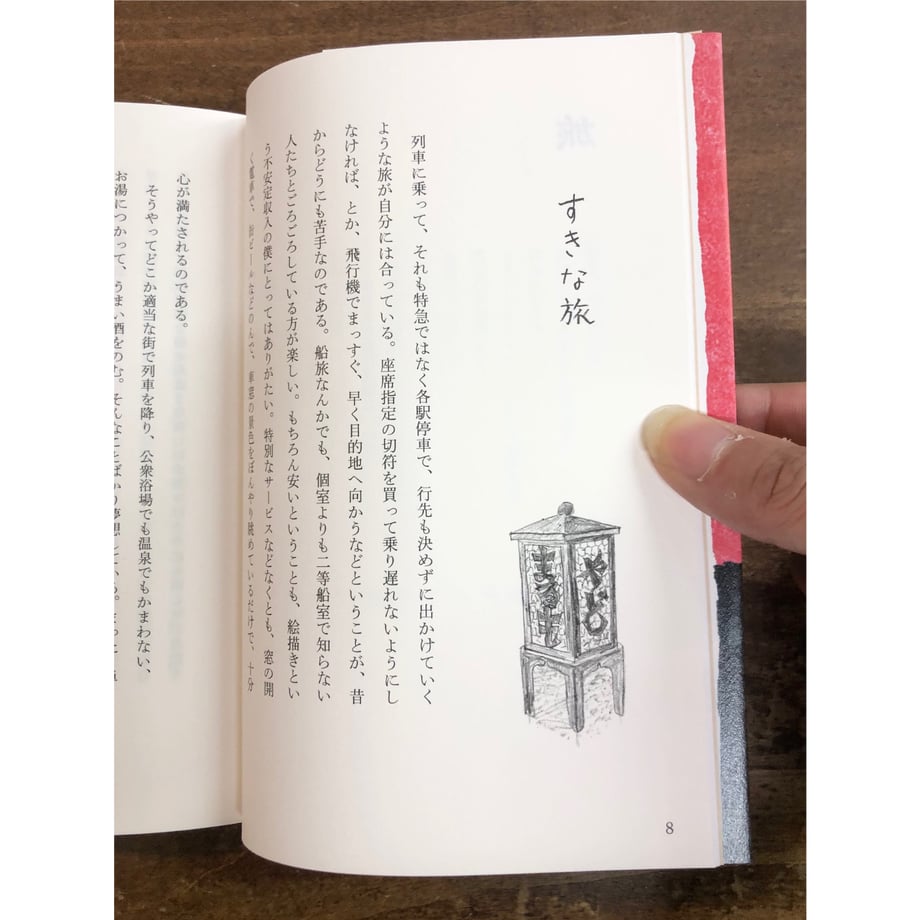 すきな旅
列車に乗って、それも特急ではなく各駅停車で、行先も決めずに出かけていく
ような旅が自分には合っている。座席指定の切符を買って乗り遅れないようにし
なければ、とか、飛行機でまっすぐ、早く目的地へ向かうなどということが、昔
からどうにも苦手なのである。船旅なんかでも、個室よりも二等船室で知らない
人たちとごろごろしている方が楽しい。もちろん安いということも、絵描きとい
う不安定収入の僕にとってはありがたい。特別なサービスなどなくとも、窓の開
く電車で、缶ビールなどのんで、車窓の景色をぼんやり眺めているだけで、十分
やど
8
心が満たされるのである。
そうやってどこか適当な街で列車を降り、公衆浴場でも温泉でもかまわない、
お湯につかって、うまい酒をのむ。そんなことばかり夢想して